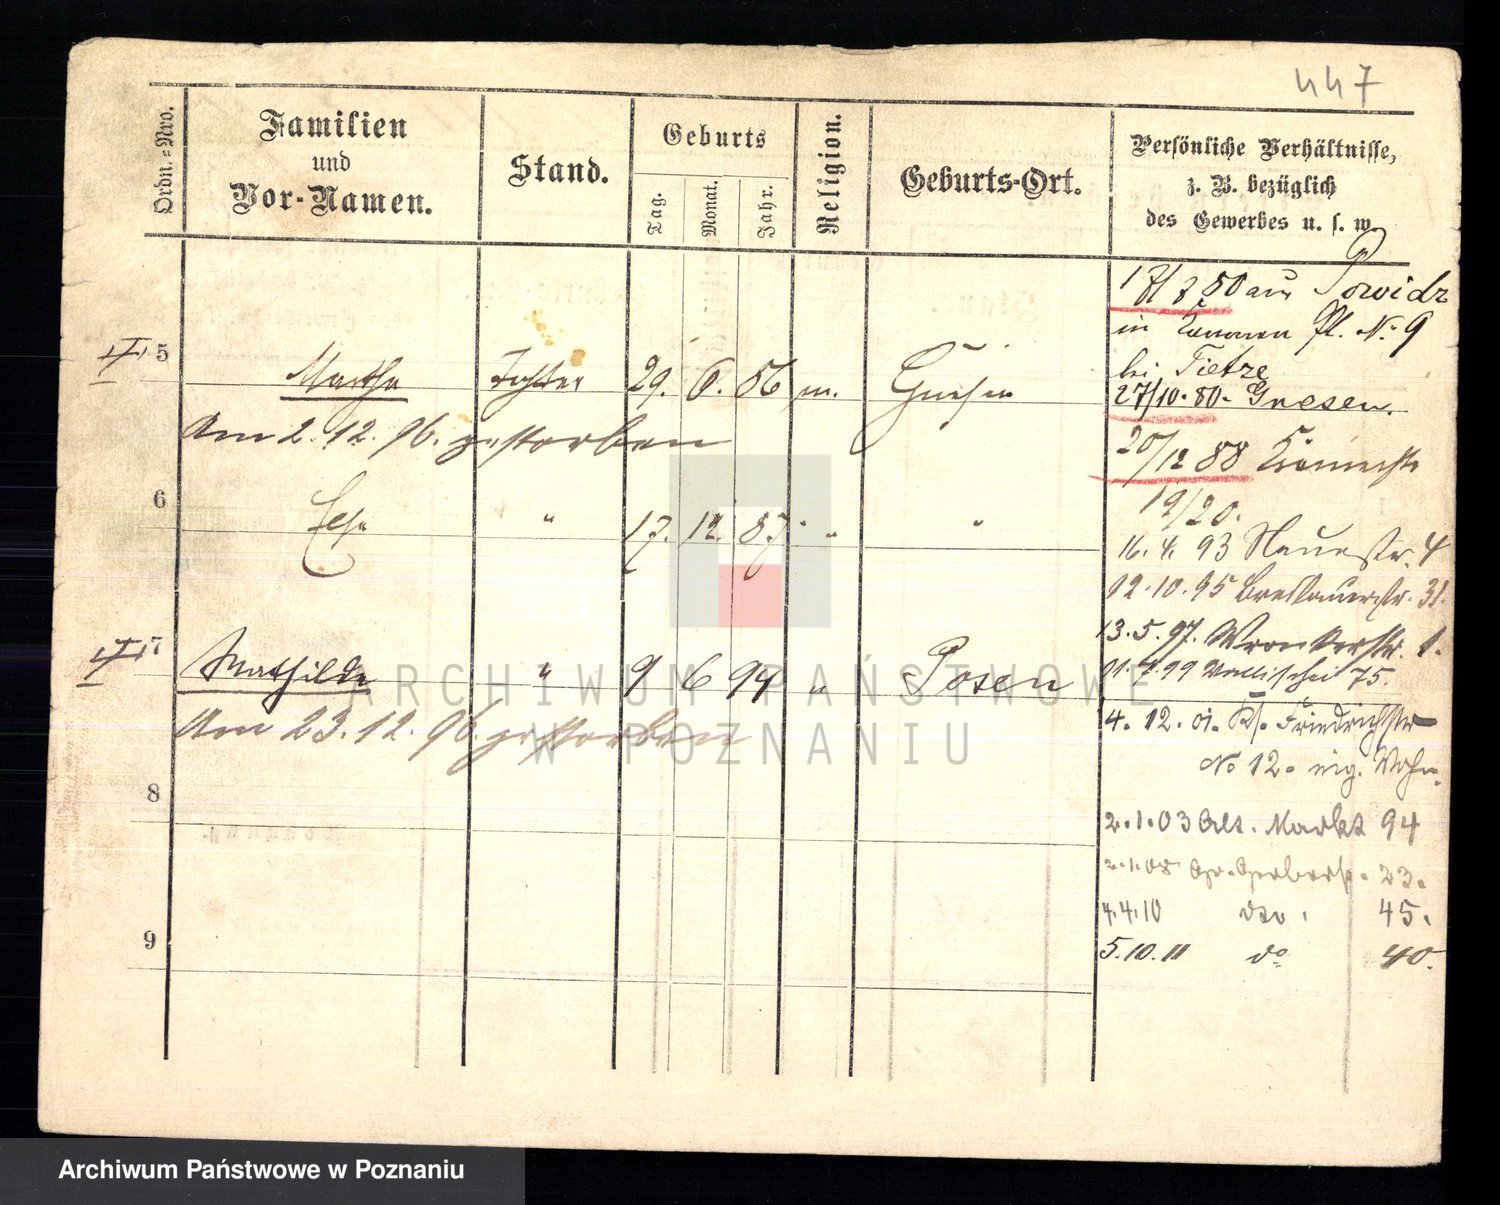 447
Ordn.-Nro.
Familien
und
Vor-Namen.
Stand.
Geburts
Tag.
Monat.
Jahr.
Religion.
Geburts-Ort.
Persönliche Verhältnisse,
z. B. bezüglich
des Gewerbes u. s. w.
17/8 80 aus Powidz
in Kommen Pl. No 9
bei Tietze
5 Martha Tochter 29. 6. 86 m. Gnesen
27/10. 80. Gnesen.
Am 2. 12. 96. gestorben
20/12 88
19/20.
6 Else " 17. 12. 87 " "
16. 4. 93 Neuestr. 4
12. 10. 95 Breslauerstr. 31.
13. 5. 97. Wronkerstr. 1.
7 Mathilde " 9 6 94 " Posen
01. 7. 99 Wallischei 75.
Am 23. 12. 96. gestorben
4. 12. 01. Friedrichstr
No 12. eig. Wohn.
8
2. 1. 03 Alt. Markt 94
2. 1. 08 Gr. Gerberstr. 23.
4. 4. 10 dto. 45.
9
5. 10. 11 do 40.
ARCHIWUM PAŃSTWOWE
W POZNANIU
Archiwum Państwowe w Poznaniu